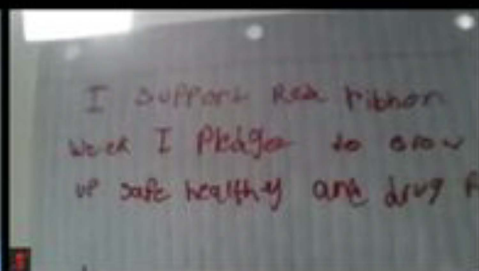 I support Red ribbon
week I Pledge to grow
up safe healthy and drug f